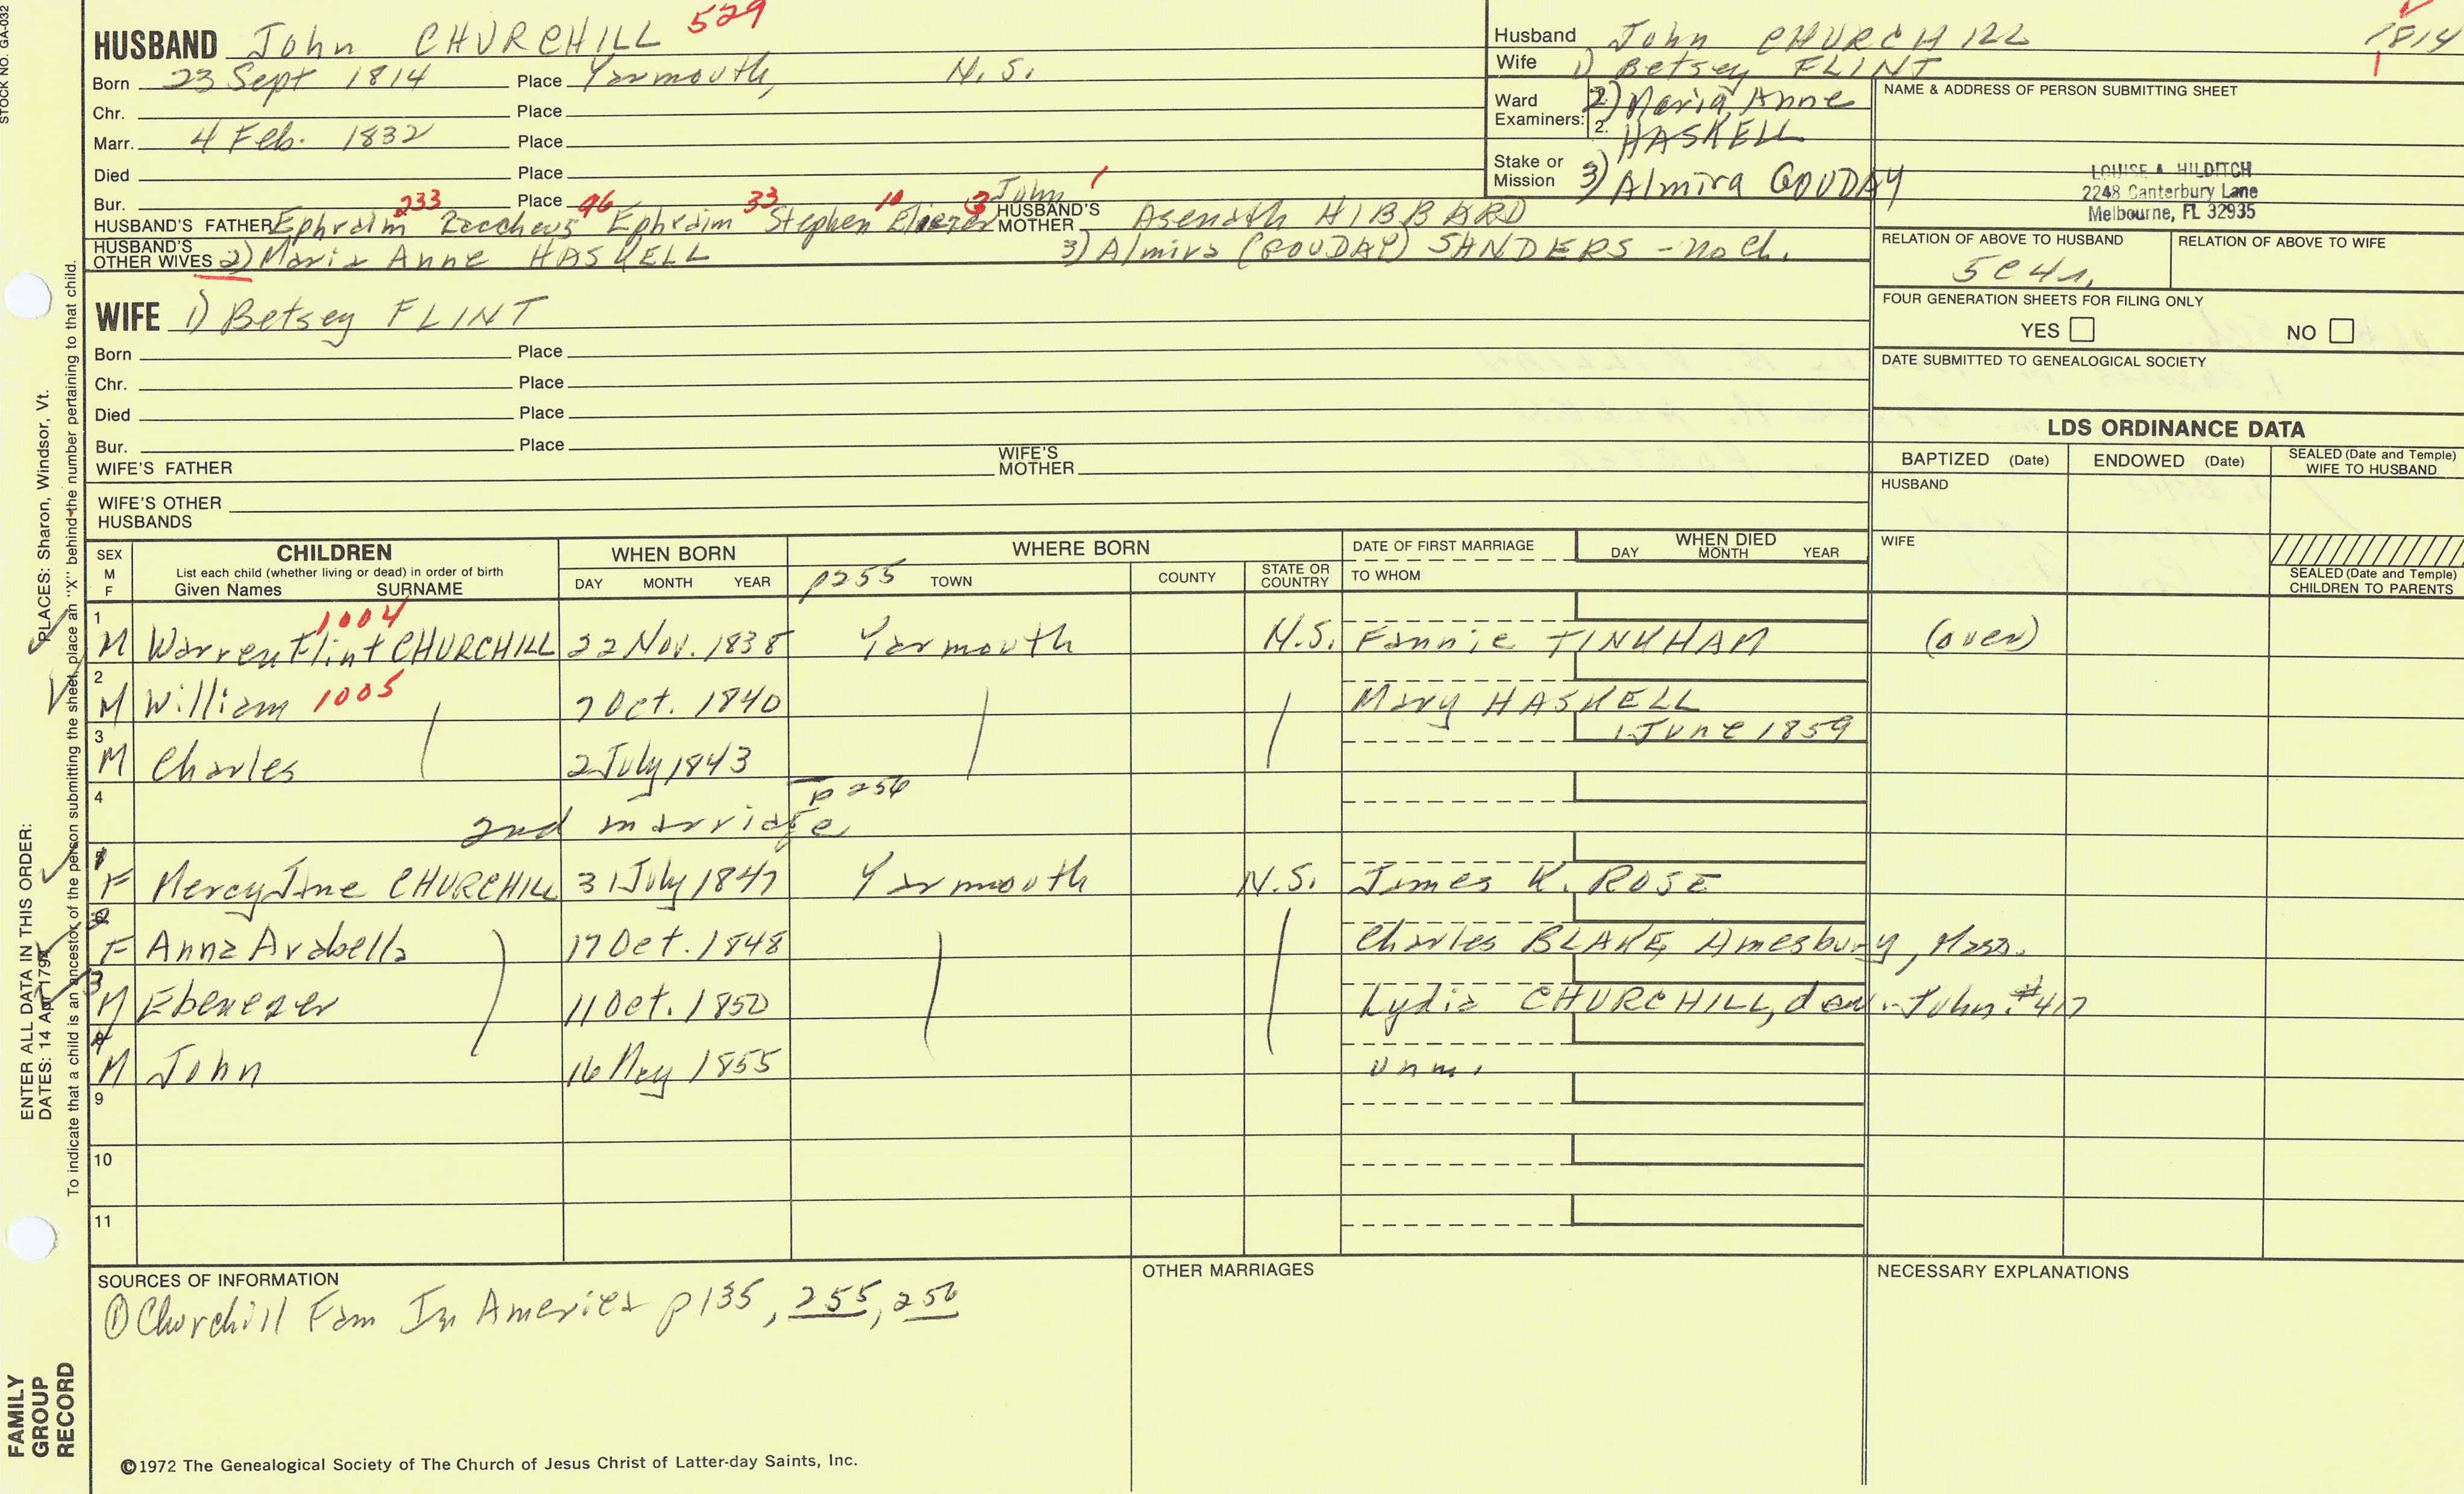 STOCK NO. GA-032
HUSBAND John CHURCHILL 529
Born 23 Sept 1814 Place Yarmouth, N.S.
Chr. Place
Marr. 4 Feb. 1832 Place
Died Place
Bur. Place
233 96 33 10 3 John 1
HUSBAND'S FATHER Ephraim Zaccheus Ephraim Stephen Eliezer HUSBAND'S MOTHER Asenath HIBBARD
HUSBAND'S OTHER WIVES 2) Maria Anne HASKELL 3) Almira (GOUDAY) SANDERS - no ch.
WIFE 1) Betsey FLINT
Born Place
Chr. Place
Died Place
Bur. Place
WIFE'S FATHER WIFE'S MOTHER
WIFE'S OTHER HUSBANDS
Husband John CHURCHILL 1814
Wife 1) Betsey FLINT 1
Ward Examiners: 1. 2. 2) Maria Anne HASKELL
Stake or Mission 3) Almira GOUDAY
NAME & ADDRESS OF PERSON SUBMITTING SHEET
LOUISE A. HILDITCH
2248 Canterbury Lane
Melbourne, FL 32935
RELATION OF ABOVE TO HUSBAND RELATION OF ABOVE TO WIFE
5c4r.
FOUR GENERATION SHEETS FOR FILING ONLY
YES NO
DATE SUBMITTED TO GENEALOGICAL SOCIETY
LDS ORDINANCE DATA
BAPTIZED (Date) ENDOWED (Date) SEALED (Date and Temple) WIFE TO HUSBAND
HUSBAND
WIFE
SEALED (Date and Temple) CHILDREN TO PARENTS
SEX M F
CHILDREN
List each child (whether living or dead) in order of birth
Given Names SURNAME
WHEN BORN
DAY MONTH YEAR
WHERE BORN
p255 TOWN COUNTY STATE OR COUNTRY
DATE OF FIRST MARRIAGE
TO WHOM
WHEN DIED
DAY MONTH YEAR
1 1004
M Warren Flint CHURCHILL 22 Nov. 1838 Yarmouth N.S. Fannie TINKHAM (over)
2
M William 1005 7 Oct. 1840 Mary HASKELL
3 1 June 1859
M Charles 2 July 1843
4 p 256
2nd marriage
1
F Mercy Jane CHURCHILL 31 July 1847 Yarmouth N.S. James K. ROSE
2
F Anna Arabella 17 Oct. 1848 Charles BLAKE, Amesbury, Mass.
3
M Ebenezer 11 Oct. 1850 Lydia CHURCHILL, dau. John #417
4
M John 16 May 1855 unm.
9
10
11
SOURCES OF INFORMATION
① Churchill Fam In America p 135, 255, 256
OTHER MARRIAGES
NECESSARY EXPLANATIONS
©1972 The Genealogical Society of The Church of Jesus Christ of Latter-day Saints, Inc.
ENTER ALL DATA IN THIS ORDER:
DATES: 14 Apr 1794
PLACES: Sharon, Windsor, Vt.
To indicate that a child is an ancestor of the person submitting the sheet, place an "X" behind the number pertaining to that child.
FAMILY
GROUP
RECORD